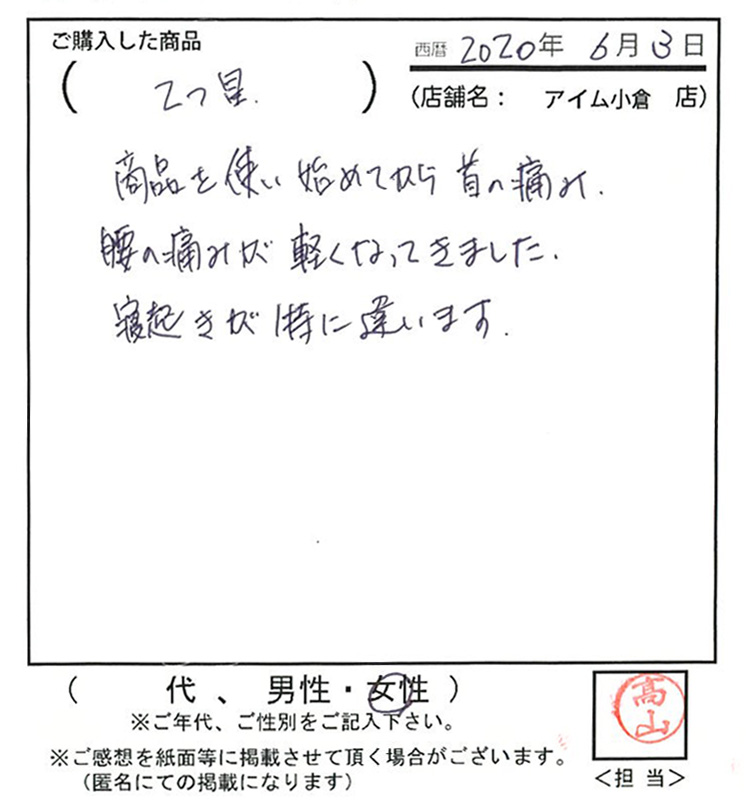 ご購入した商品
西暦 2020年 6月 3日
( 2つ星. )
(店舗名： アイム小倉 店)
商品を使い始めてから首の痛み.
腰の痛みが軽くなってきました.
寝起きが特に違います.
( 代 、 男性・女性 )
※ご年代、ご性別をご記入下さい。
※ご感想を紙面等に掲載させて頂く場合がございます。
(匿名にての掲載になります)
高山
＜担 当＞